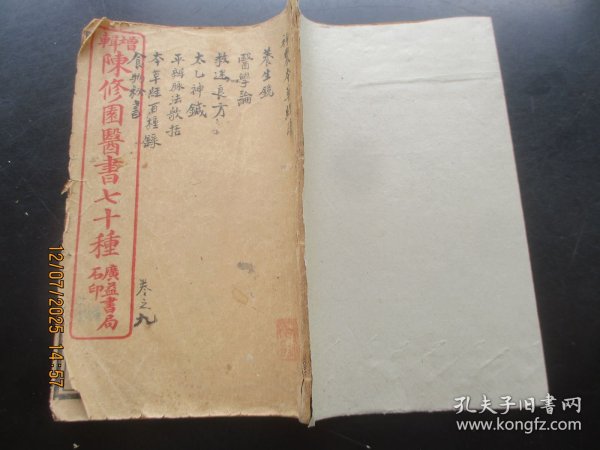 增輯
陳修園醫書七十種
廣益書局
石印
養生鏡
醫學論
救急良方
太乙神鍼
平辨脉法歌括
本草經百種錄
食物秘書
卷之九
12/07/2025 14:57
孔夫子旧书网
www.kongfz.com